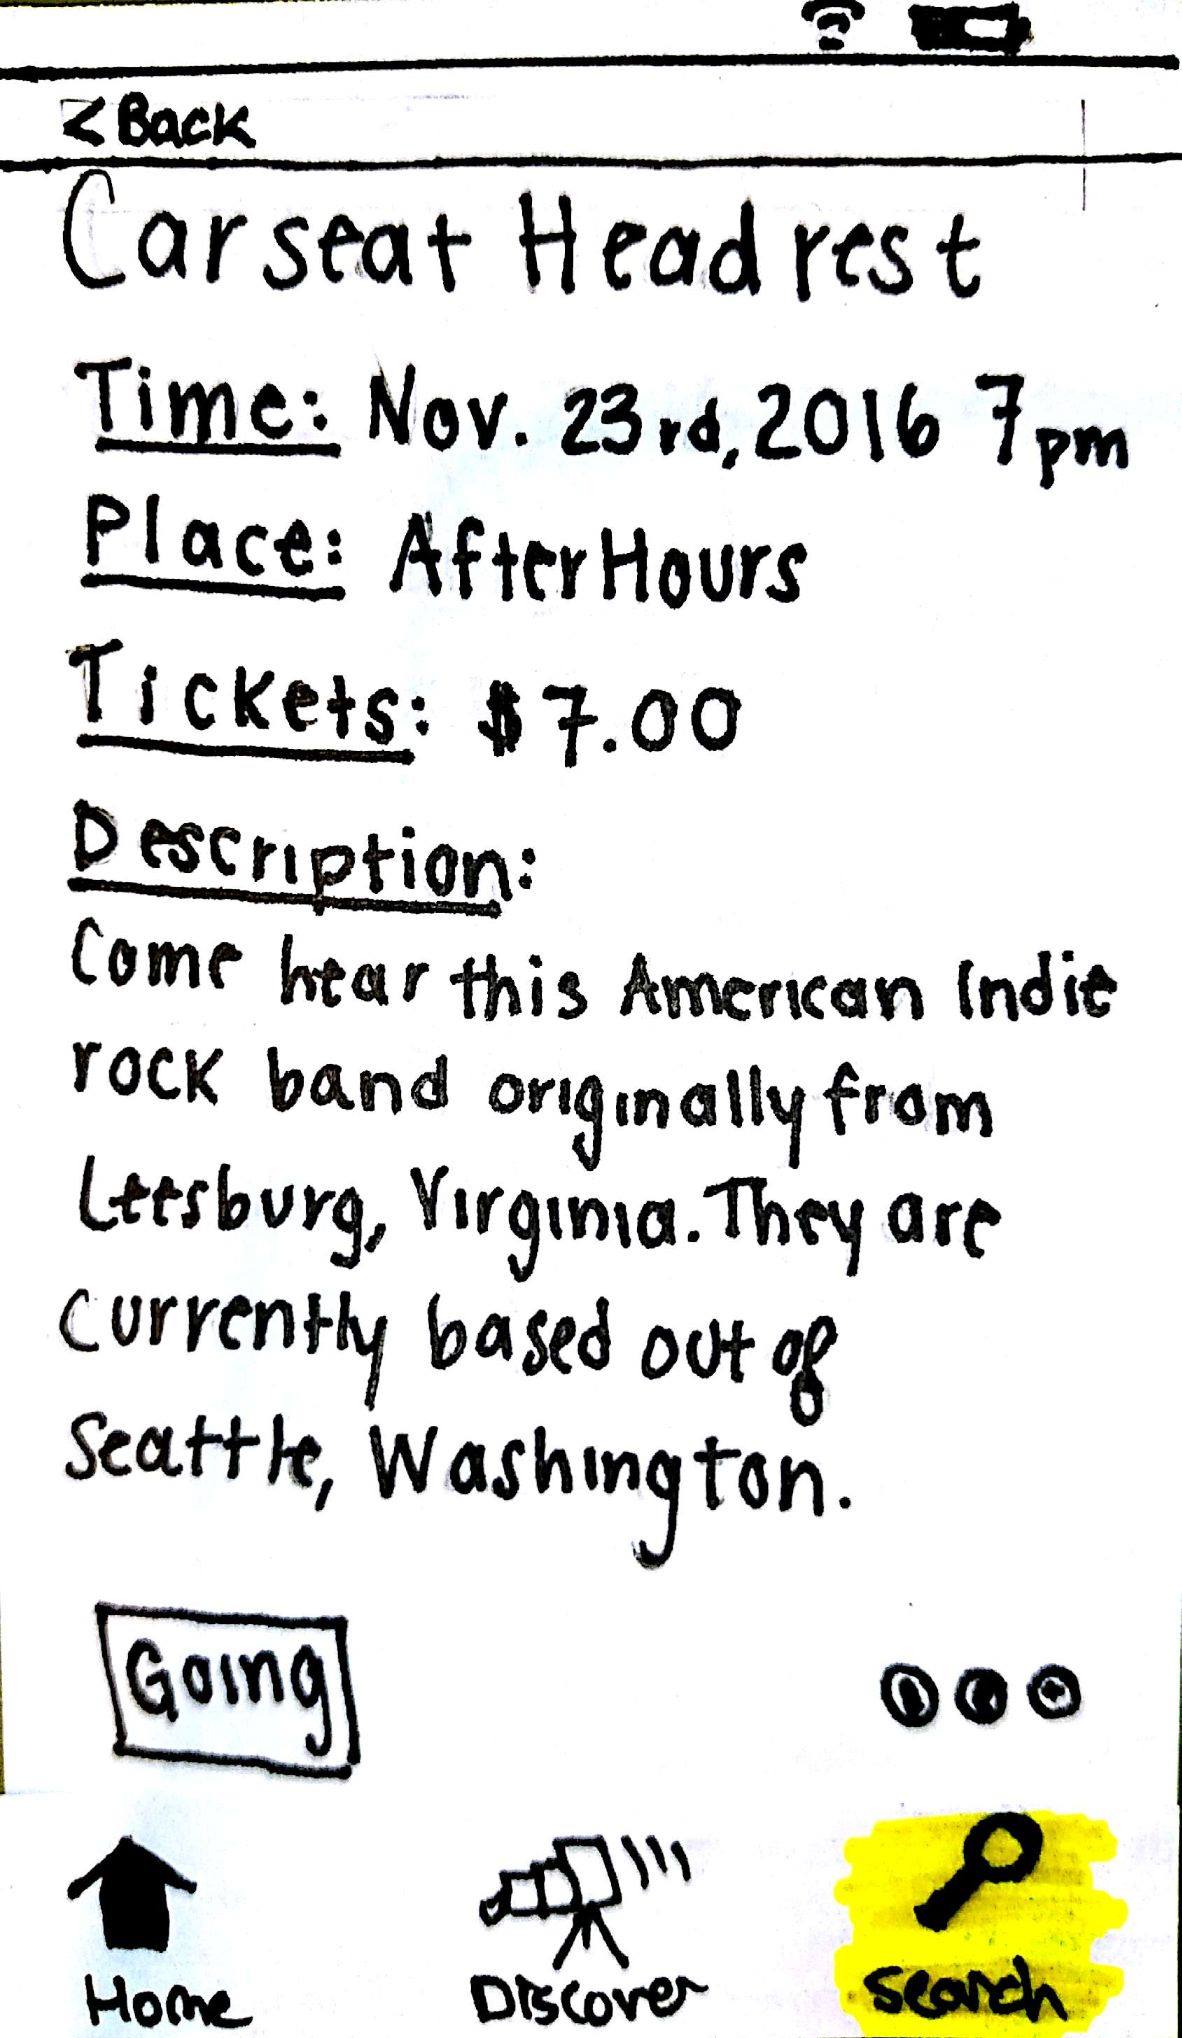 < Back
Car seat Headrest
Time: Nov. 23rd, 2016 7pm
Place: AfterHours
Tickets: $7.00
Description:
Come hear this American Indie
rock band originally from
Leesburg, Virginia. They are
currently based out of
Seattle, Washington.
Going
Home Discover Search